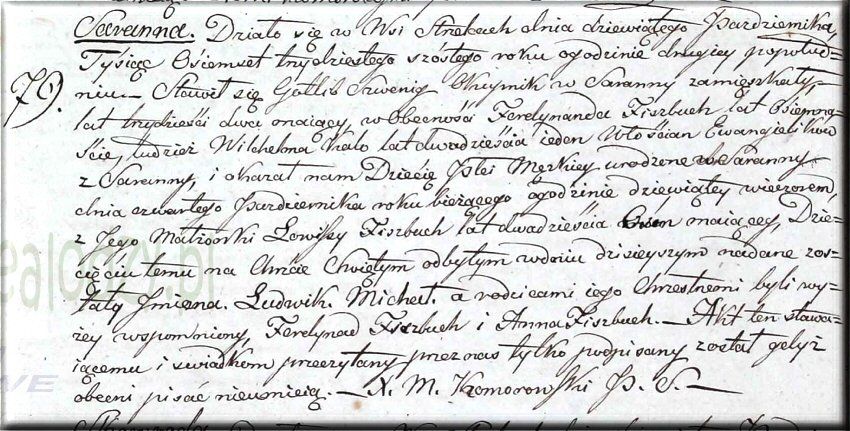 Saranna. Działo się w Wsi Strekach dnia dziewiątego Pazdziernika,
79. Tysiąc Ośiemset trzydziestego szóstego roku ogodzinie drugiey popołud-
niu — Stawił się Gottlib Szwenig Okupnik w Saranny zamięszkały,
lat trzydzieści dwa maiący, w obecności Ferdynanda Fiszbuch lat Osiemna-
ście, tudzież Wilchelma Kalo lat dwadzieścia ieden Włościan Ewangielików
z Saranny, i okazał nam Dziécię Płci Męzkiey urodzone w Saranny
dnia czwartego Pazdziernika roku bieżącego ogodzinie dziewiątey wieczorem,
z Jego Małżonki Lowisy Fiszbuch lat dwadzieścia Osm maiącey, Dzie-
cięciu temu na Chrzcie Swiętym odbytym wdniu dzisieyszym nadane zos-
tały Jmiona. Ludwik. Michał. a rodzicami iego Chrzestnemi byli wy-
żey wspomniony, Ferdynad Fiszbuch i Anna Fiszbuch. — Akt ten stawa-
iącemu i swiadkom przeczytany przez nas tylko podpisany został gdyż
obecni pisać nieumieią. — X. M. Komorowski P. S. —